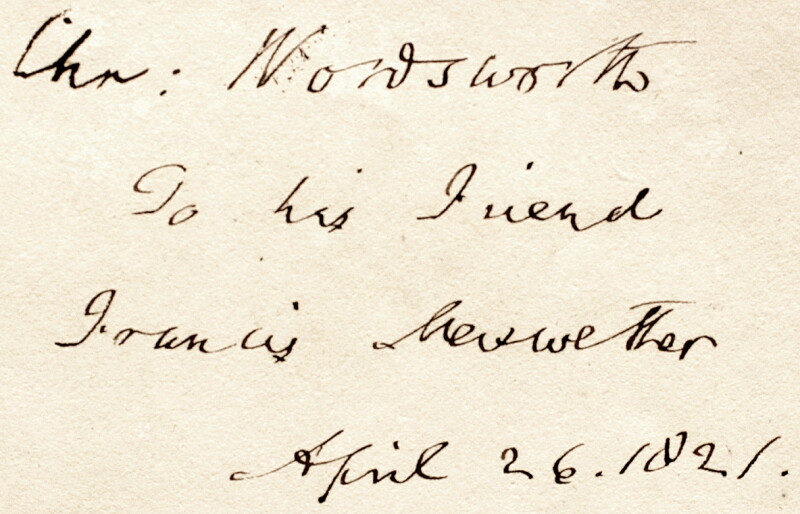 Chr: Wordsworth
To his Friend
Francis Merewether
April 26. 1821.